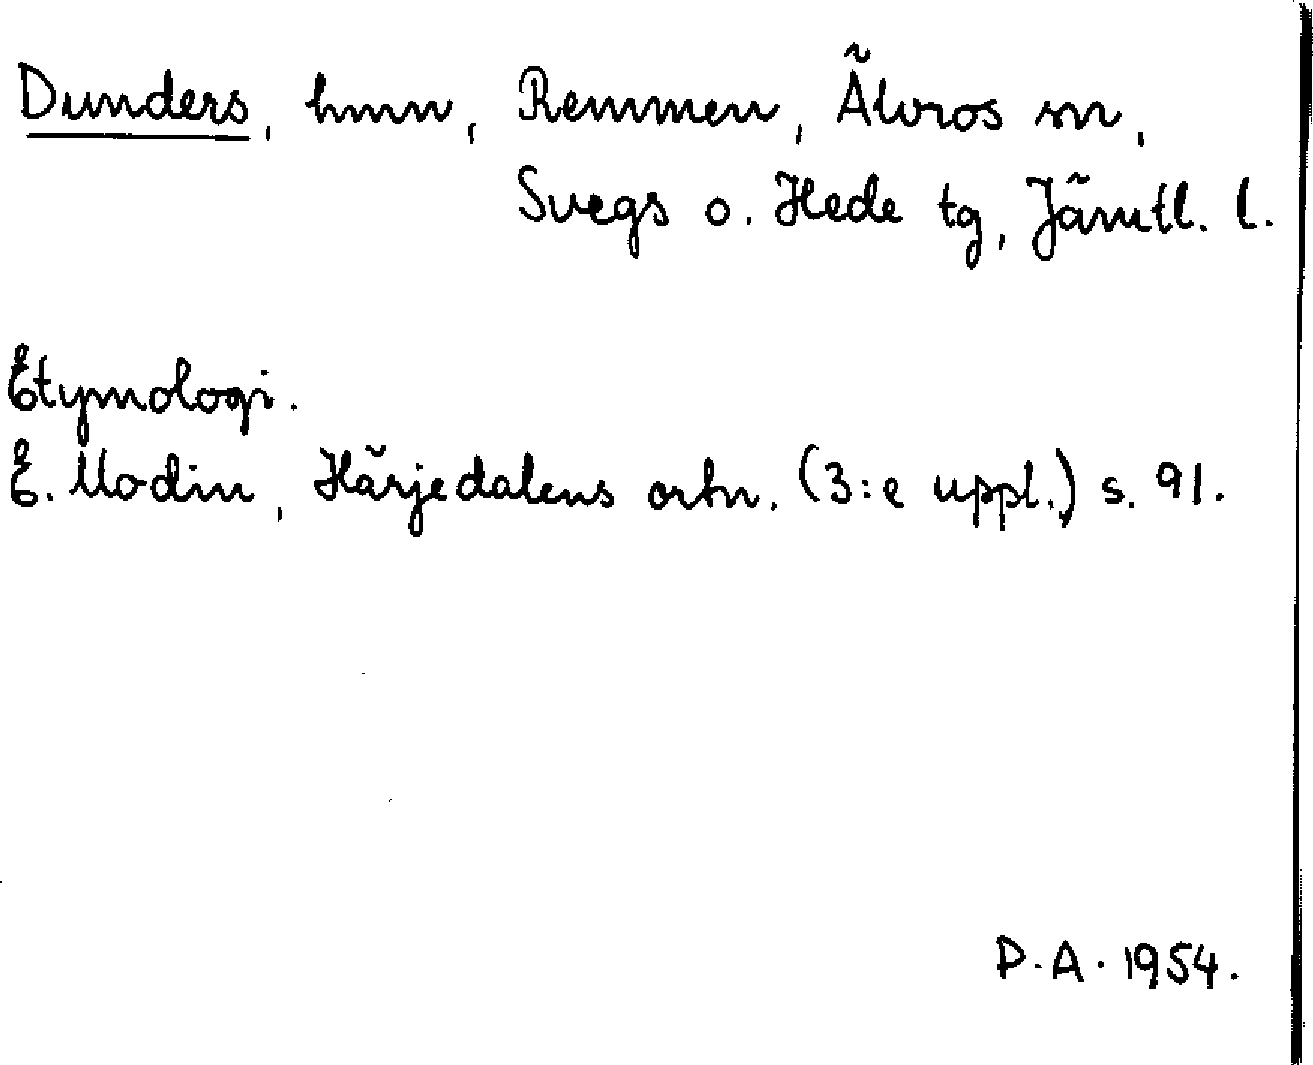 Dunders, hmn, Remmen, Älvros sn,
Svegs o. Hede tg, Jämtl. l.
Etymologi.
E. Modin, Härjedalens ortn. (3:e uppl.) s. 91.
D.A. 1954.